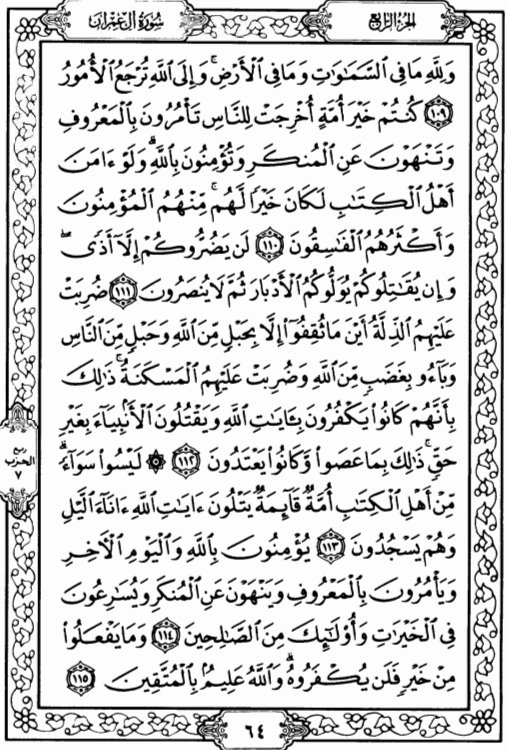 سُورَةُ آلِ عِمْرَانَ
الجُزْءُ الرَّابِعُ
وَلِلَّهِ مَا فِي السَّمَٰوَٰتِ وَمَا فِي الْأَرْضِ ۚ وَإِلَى اللَّهِ تُرْجَعُ الْأُمُورُ
١٠٩ كُنتُمْ خَيْرَ أُمَّةٍ أُخْرِجَتْ لِلنَّاسِ تَأْمُرُونَ بِالْمَعْرُوفِ
وَتَنْهَوْنَ عَنِ الْمُنكَرِ وَتُؤْمِنُونَ بِاللَّهِ ۗ وَلَوْ ءَامَنَ
أَهْلُ الْكِتَٰبِ لَكَانَ خَيْرًا لَّهُم ۚ مِّنْهُمُ الْمُؤْمِنُونَ
وَأَكْثَرُهُمُ الْفَٰسِقُونَ ١١٠ لَن يَضُرُّوكُمْ إِلَّآ أَذًى ۖ
وَإِن يُقَٰتِلُوكُمْ يُوَلُّوكُمُ الْأَدْبَارَ ثُمَّ لَا يُنصَرُونَ ١١١ ضُرِبَتْ
عَلَيْهِمُ الذِّلَّةُ أَيْنَ مَا ثُقِفُوٓا۟ إِلَّا بِحَبْلٍ مِّنَ اللَّهِ وَحَبْلٍ مِّنَ النَّاسِ
وَبَآءُو بِغَضَبٍ مِّنَ اللَّهِ وَضُرِبَتْ عَلَيْهِمُ الْمَسْكَنَةُ ۚ ذَٰلِكَ
بِأَنَّهُمْ كَانُوا۟ يَكْفُرُونَ بِـَٔايَٰتِ اللَّهِ وَيَقْتُلُونَ الْأَنۢبِيَآءَ بِغَيْرِ
حَقٍّ ۚ ذَٰلِكَ بِمَا عَصَوا۟ وَّكَانُوا۟ يَعْتَدُونَ ١١٢ ۞ لَيْسُوا۟ سَوَآءً ۗ
مِّنْ أَهْلِ الْكِتَٰبِ أُمَّةٌ قَآئِمَةٌ يَتْلُونَ ءَايَٰتِ اللَّهِ ءَانَآءَ الَّيْلِ
وَهُمْ يَسْجُدُونَ ١١٣ يُؤْمِنُونَ بِاللَّهِ وَالْيَوْمِ الْءَاخِرِ
وَيَأْمُرُونَ بِالْمَعْرُوفِ وَيَنْهَوْنَ عَنِ الْمُنكَرِ وَيُسَٰرِعُونَ
فِي الْخَيْرَٰتِ وَأُو۟لَٰٓئِكَ مِنَ الصَّٰلِحِينَ ١١٤ وَمَا يَفْعَلُوا۟
مِنْ خَيْرٍ فَلَن يُكْفَرُوهُ ۗ وَاللَّهُ عَلِيمٌۢ بِالْمُتَّقِينَ ١١٥
ربع
الحزب
٧
٦٤